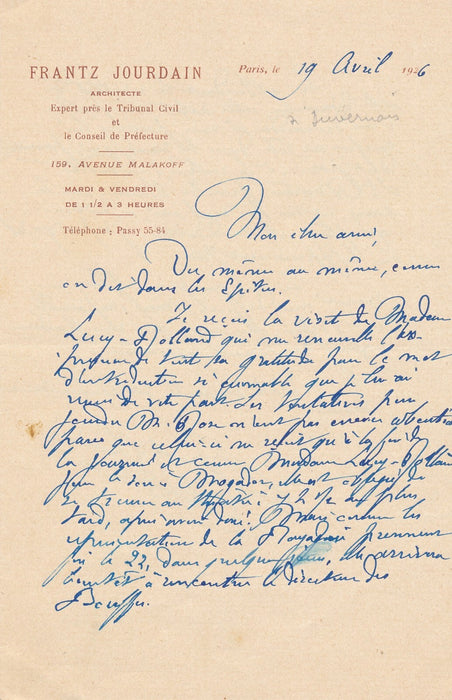 FRANTZ JOURDAIN
ARCHITECTE
Expert près le Tribunal Civil
et
le Conseil de Préfecture
159, AVENUE MALAKOFF
MARDI & VENDREDI
DE 1 1/2 A 3 HEURES
Téléphone : Passy 55-84
Paris, le 19 Avril 1926
Mon cher ami,
Du même au même, comme
on dit dans les Epitres.
Je reçois la visite de Madame
Lucy-Jolland qui me renouvelle l'ex-
pression de toute sa gratitude pour le mot
d'introduction si aimable que je lui ai
remis de votre part. Ses tentatives pour
joindre M. n'ont pas encore
parce que celui-ci ne reçoit qu'à la fin de
la journée et comme Madame Lucy-
joue le soir à Mogador, elle est obligée de
se trouver au théâtre à 7 h. 1/2 au plus
tard, après avoir dîné. Mais comme les
représentations de la prennent
fin le 22, dans quelques jours, elle arrivera
bientôt à rencontrer le directeur des
Bouffes.